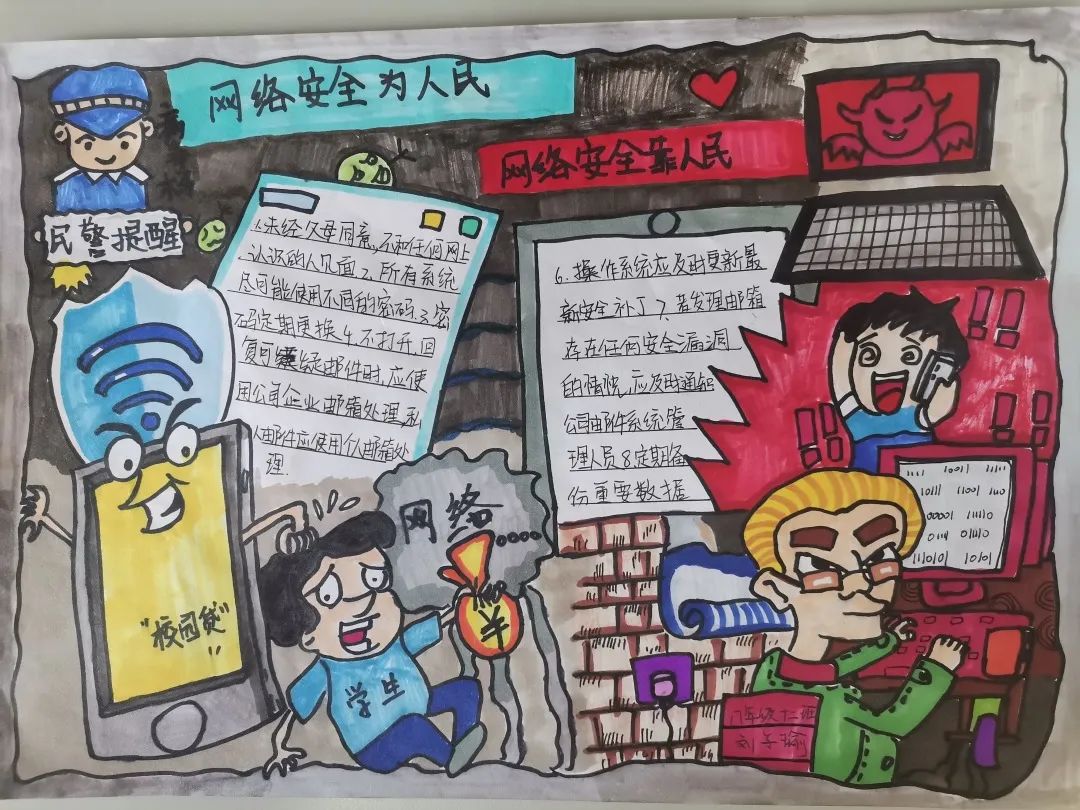 网络安全为人民
网络安全靠人民
民警提醒
1.未经父母同意,不和任何网上
认识的人见面 2.所有系统
尽可能使用不同的密码 3.密
码定期更换 4.不打开,回
复可疑邮件时,应使
用公司企业邮箱处理,私
人邮件应使用个人邮箱处
理.
6.操作系统应及时更新最
新安全补丁 7.若发理邮箱
存在任何安全漏洞
的情况,应及时通知
公司邮件系统管
理人员 8.定期备
份重要数据
网络....
¥
"校园贷"
!!
学生
11111 10011 11111
10111 11001 1110
00001 01110
0111 01110
1110101 10101
八年级十二班
刘子瑜